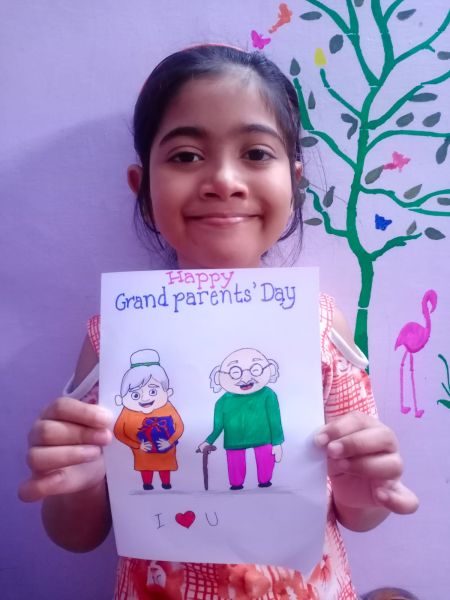 Happy
Grand parents' Day
I ❤ U